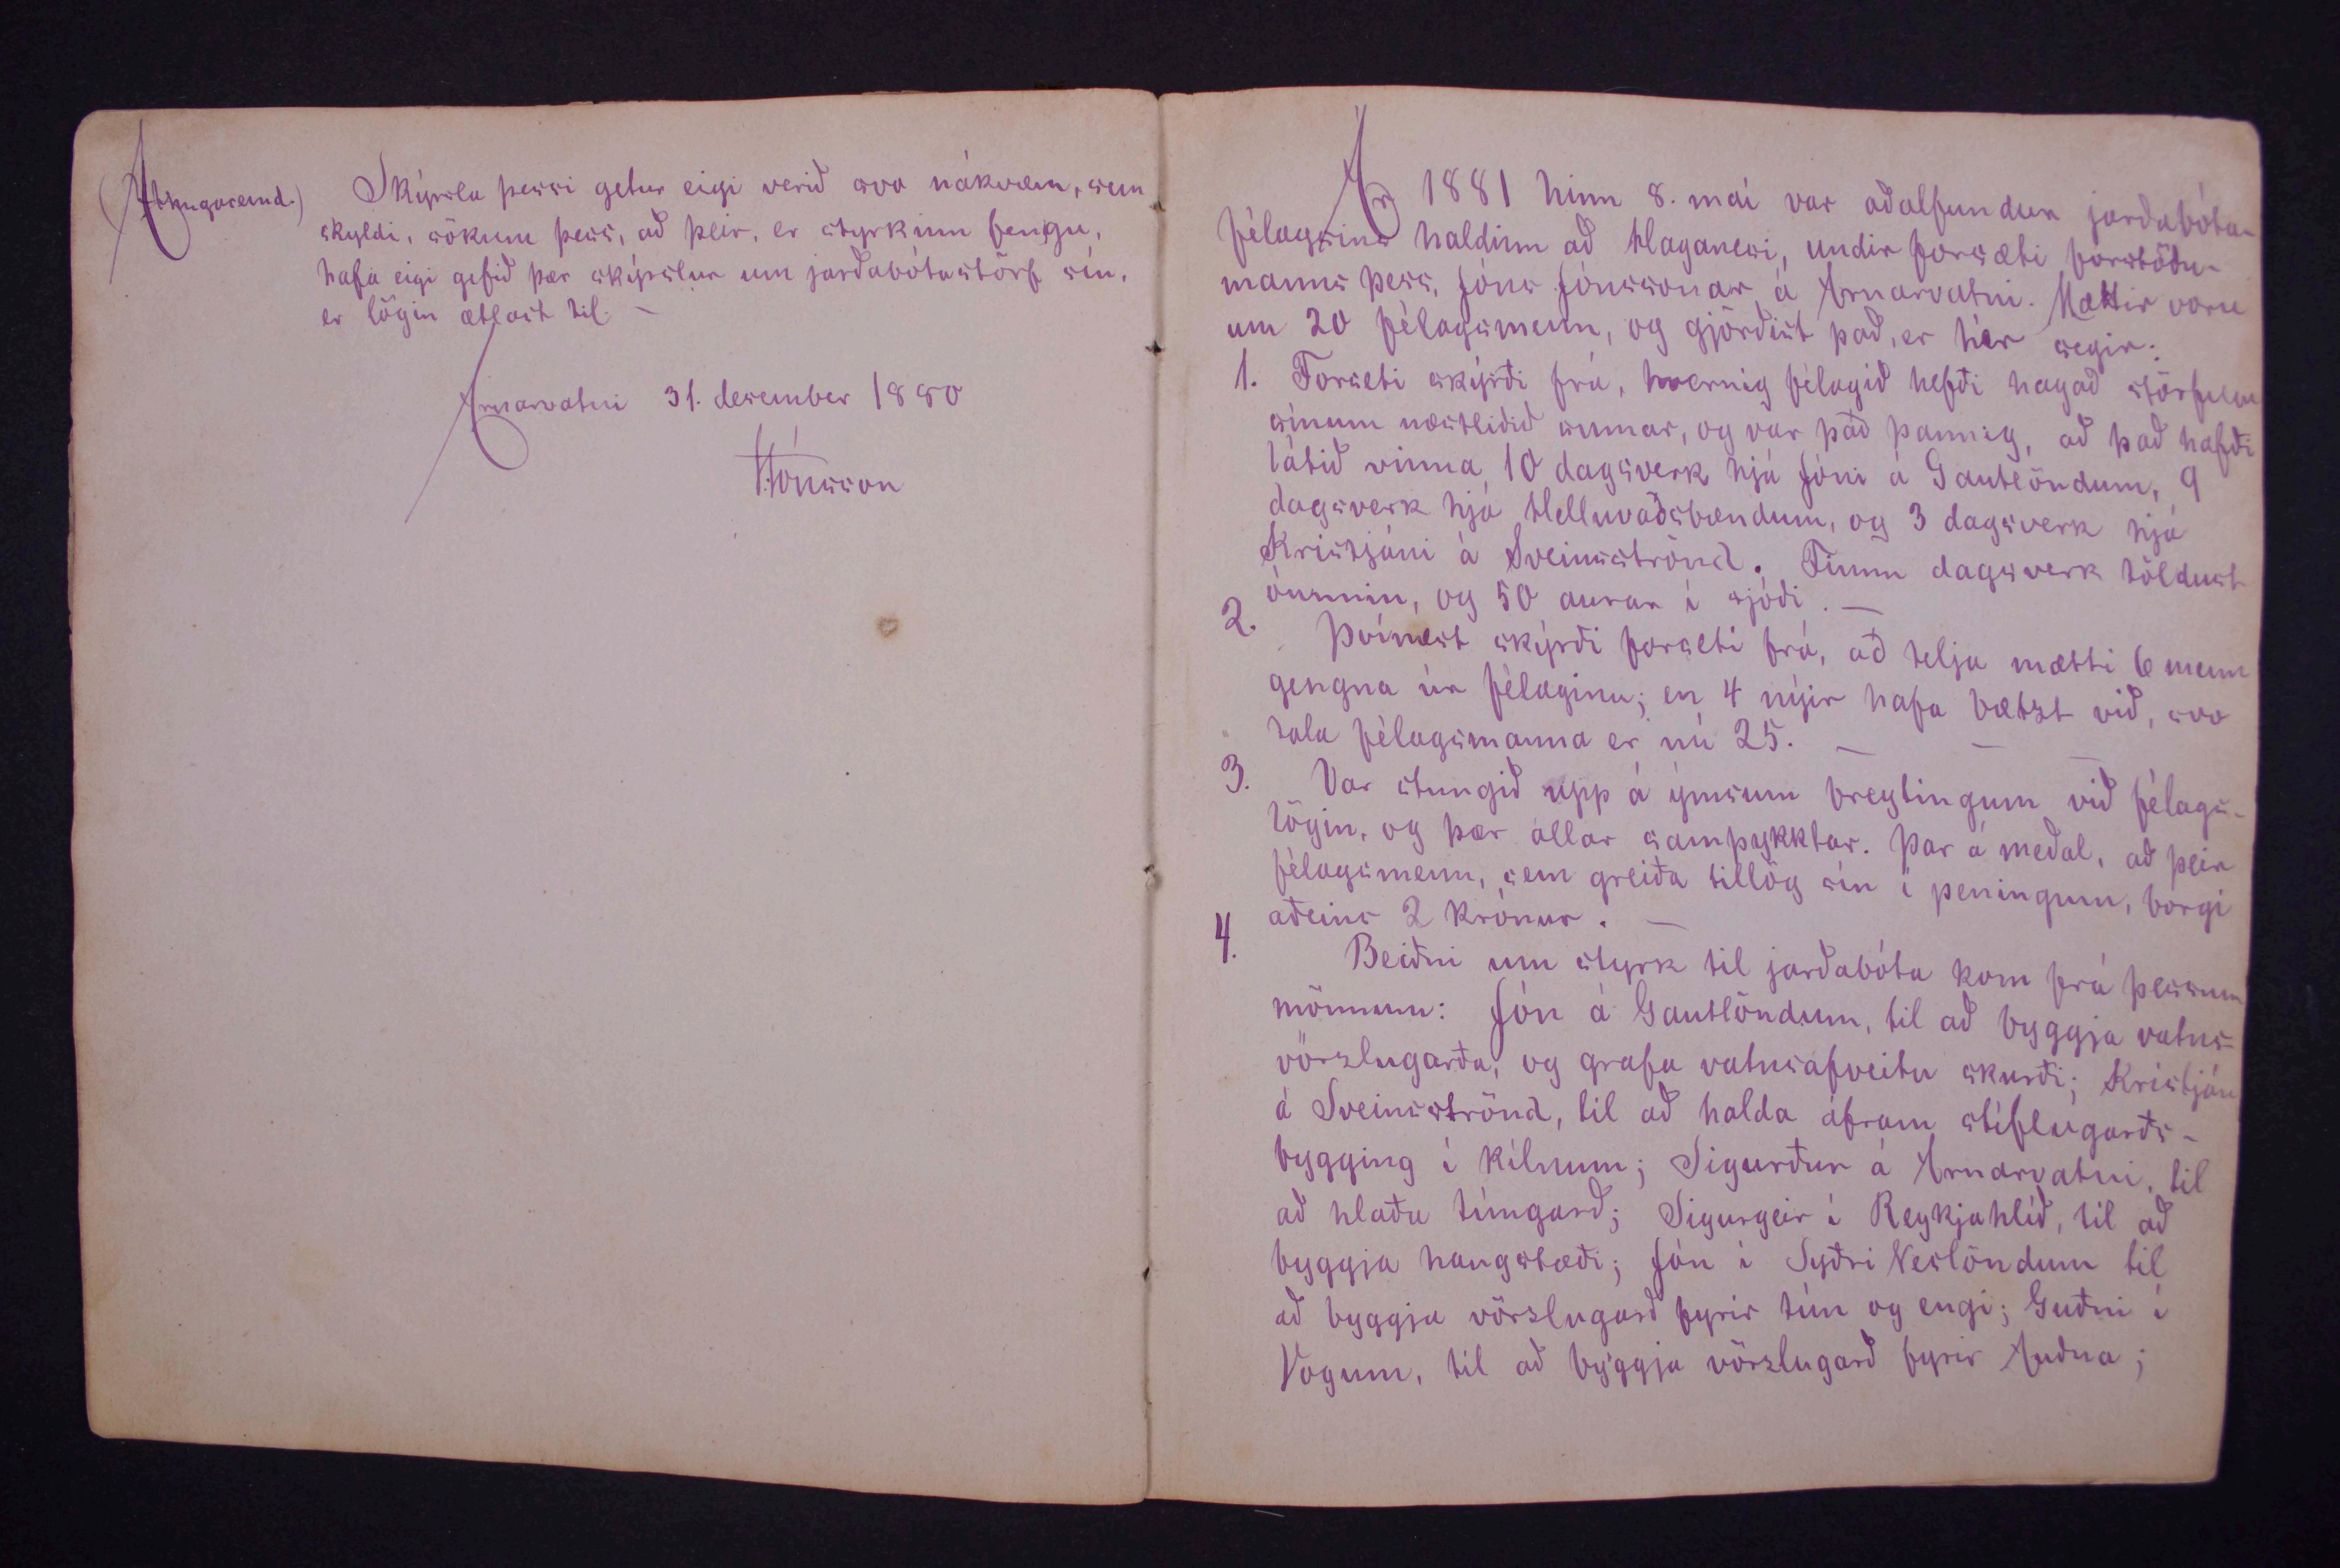 (Athugasemd.) Skýrsla þessi getur eigi verið svo nákvæm, sem
skyldi, sökum þess, að þeir, er styrkinn fengu,
hafa eigi gefið þær skýrslur um jarðabótastörf sín,
er lögin ætlast til. –
Arnarvatni 31. desember 1880
J. Jónsson
Ár 1881 hinn 8. maí var aðalfundur jarðabóta-
félagsins haldinn að Haganesi, undir forsæti forstöðu-
manns þess, Jóns Jónssonar á Arnarvatni. Mættir voru
um 20 félagsmenn, og gjörðist það, er hér segir:
1. Forseti skýrði frá, hvernig félagið hefði hagað störfum
sínum næstliðið sumar, og var það þannig, að það hafði
látið vinna 10 dagsverk hjá Jóni á Gautlöndum, 9
dagsverk hjá Helluvaðsbændum, og 3 dagsverk hjá
Kristjáni á Sveinsströnd. Fimm dagsverk töldust
óunnin, og 50 aurar í sjóði. –
2. Þvínæst skýrði forseti frá, að telja mætti 6 menn
gengna úr félaginu; en 4 nýir hafa bætst við, svo
tala félagsmanna er nú 25. – – –
3. Var stungið upp á ýmsum breytingum við félags-
lögin, og þær allar samþykktar. Þar á meðal, að þeir
félagsmenn, sem greiða tillög sín í peningum, borgi
aðeins 2 krónur. –
4. Beiðni um styrk til jarðabóta kom frá þessum
mönnum: Jón á Gautlöndum, til að byggja vatns-
vörzlugarða, og grafa vatnsafveitu skurði; Kristján
á Sveinsströnd, til að halda áfram stíflugarðs-
bygging í kílnum; Sigurður á Arnarvatni, til
að hlaða túngarð; Sigurgeir í Reykjahlíð, til að
byggja haugstæði; Jón í Syðri Neslöndum til
að byggja vörzlugarð fyrir tún og engi; Guðni í
Vogum, til að byggja vörzlugarð fyrir Auðna;